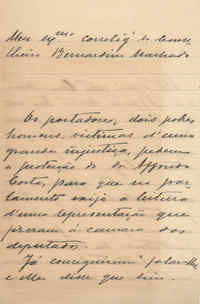 Meu Exmo correlig. e Conse-
lheiro Bernardino Machado
Os portadores, dois pobres
homens victimas d'uma
grande injustiça, pedem
a protecção do dr Affonso
Costa, para que no par-
lamento exija a leitura
d'uma representação que
fizeram á camara dos
deputados.
Já conseguiram falar-lhe
e elle disse que sim.